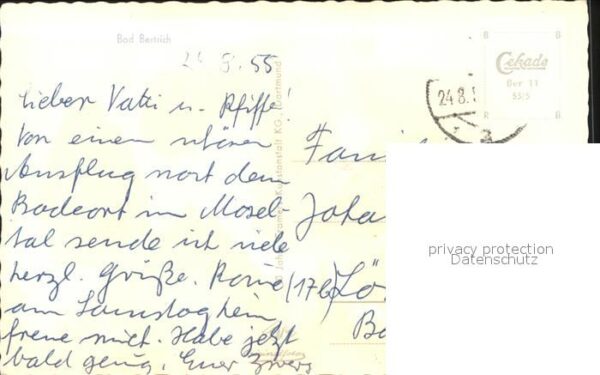 Bad Bertrich
24.8.55
Cekade
Ber 11
55/5
B B
B R
24.8.5
Lieber Vati u. Pfiffe!
Von einem schönen
Ausflug nach dem
Badeort im Mosel-
tal sende ich viele
herzl. Grüße. Komme
am Samstag heim
freue mich. Habe jetzt
bald genug. Euer Zwerg
Fami
Joha
(17b) Lö
Ba
Kunstanstalt KG, Dortmund
privacy protection
Datenschutz